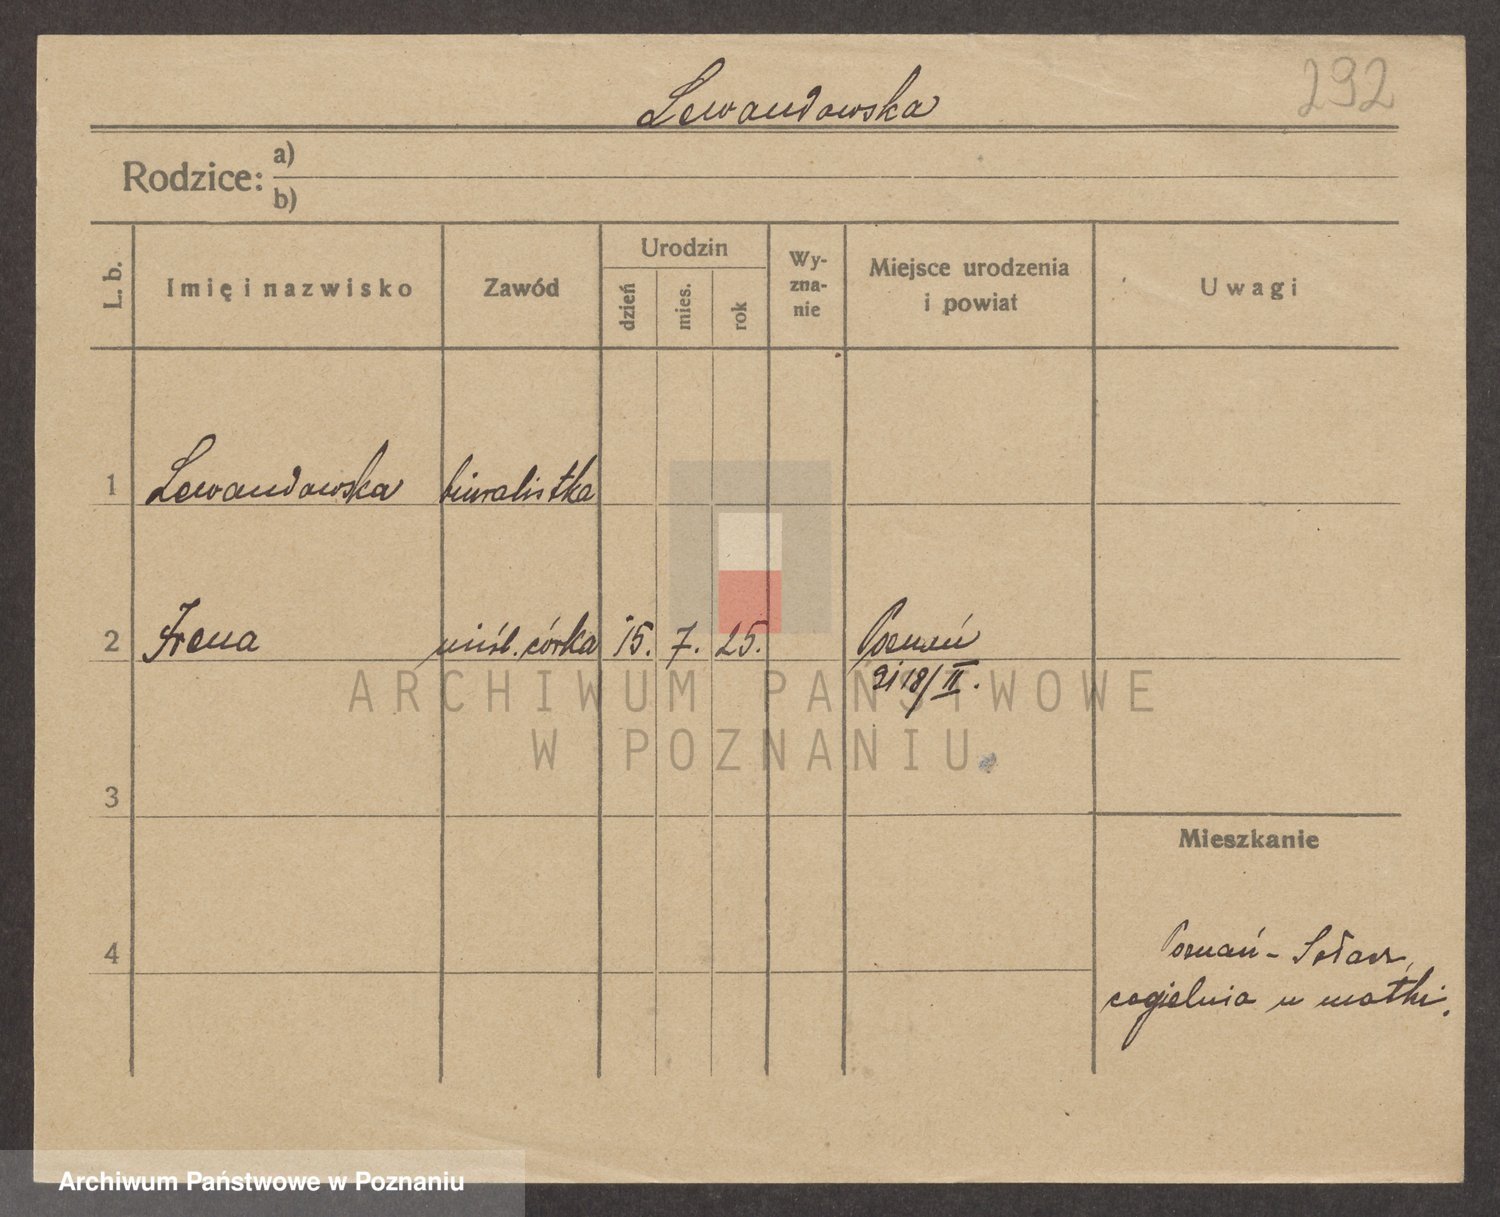 292
Lewandowska
Rodzice: a)
b)
L. b.
Imię i nazwisko
Zawód
Urodzin
dzień
mies.
rok
Wy-
zna-
nie
Miejsce urodzenia
i powiat
Uwagi
1 Lewandowska biuralistka
2 Irena nieśl. córka 15. 7. 25. Poznań
18/II.
3
4
Mieszkanie
Poznań - Sołacz,
cegielnia u matki.
ARCHIWUM PAŃSTWOWE
W POZNANIU
Archiwum Państwowe w Poznaniu